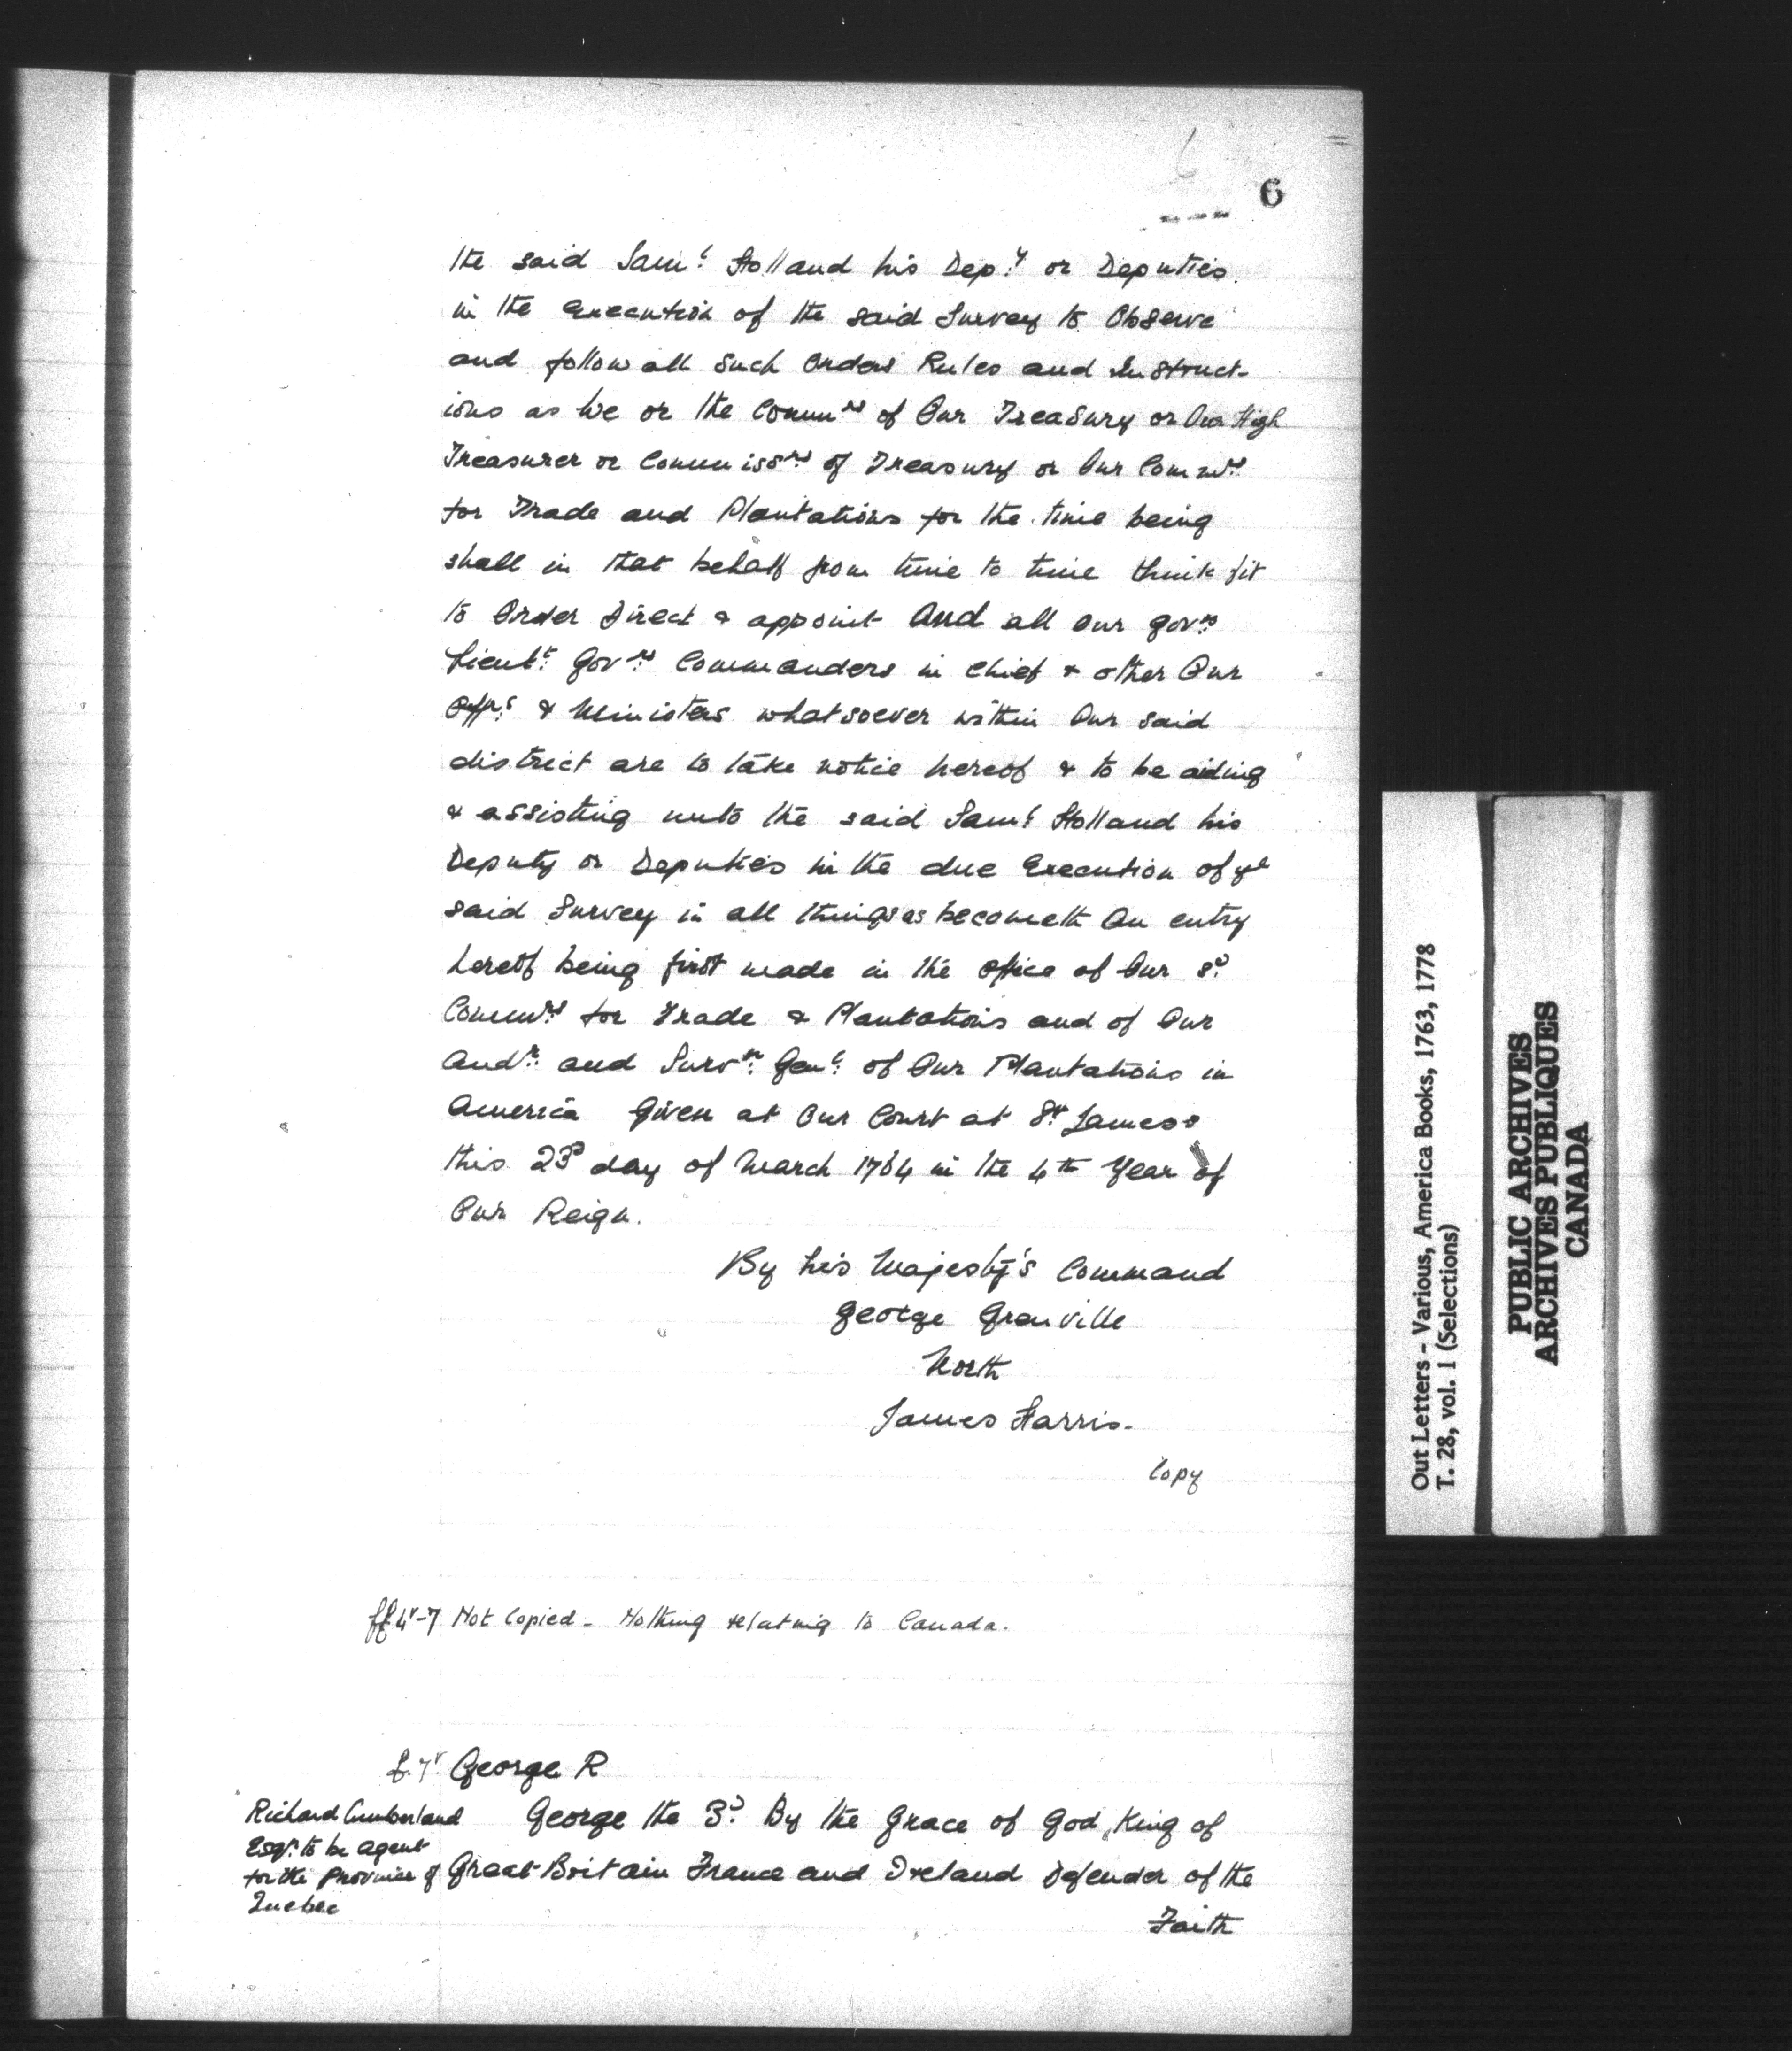 6
6
the said Sam.l Holland his Dep.y or Deputies
in the Execution of the said Survey to Observe
and follow all Such Orders Rules and Instruct-
ions as We or the Commrs of Our Treasury or Our High
Treasurer or Commissrs of Treasury or Our Commrs
for Trade and Plantations for the time being
shall in that behalf from time to time think fit
to Order Direct & appoint And all our Govrs
Lieut.t Govrs Commanders in Chief & other Our
Offrs & Ministers whatsoever within Our said
district are to take notice hereof & to be aiding
& assisting unto the said Sam.l Holland his
Deputy or Deputies in the due Execution of ye
said Survey in all things as becometh An entry
hereof being first made in the Office of Our sd
Commrs for Trade & Plantations and of Our
Audr and Survr Genl of Our Plantations in
America Given at Our Court at St James's
this 23d day of March 1764 in the 4th Year of
Our Reign.
By his Majesty's Command
George Grenville
North
James Harris.
Copy
ff 4v-7 Not Copied - Nothing relating to Canada.
f. 7v George R
Richard Cumberland
Esqr. to be agent
for the Province of
Quebec
George the 3d By the Grace of God King of
Great Britain France and Ireland Defender of the
Faith
Out Letters - Various, America Books, 1763, 1778
T. 28, vol. 1 (Selections)
PUBLIC ARCHIVES
ARCHIVES PUBLIQUES
CANADA